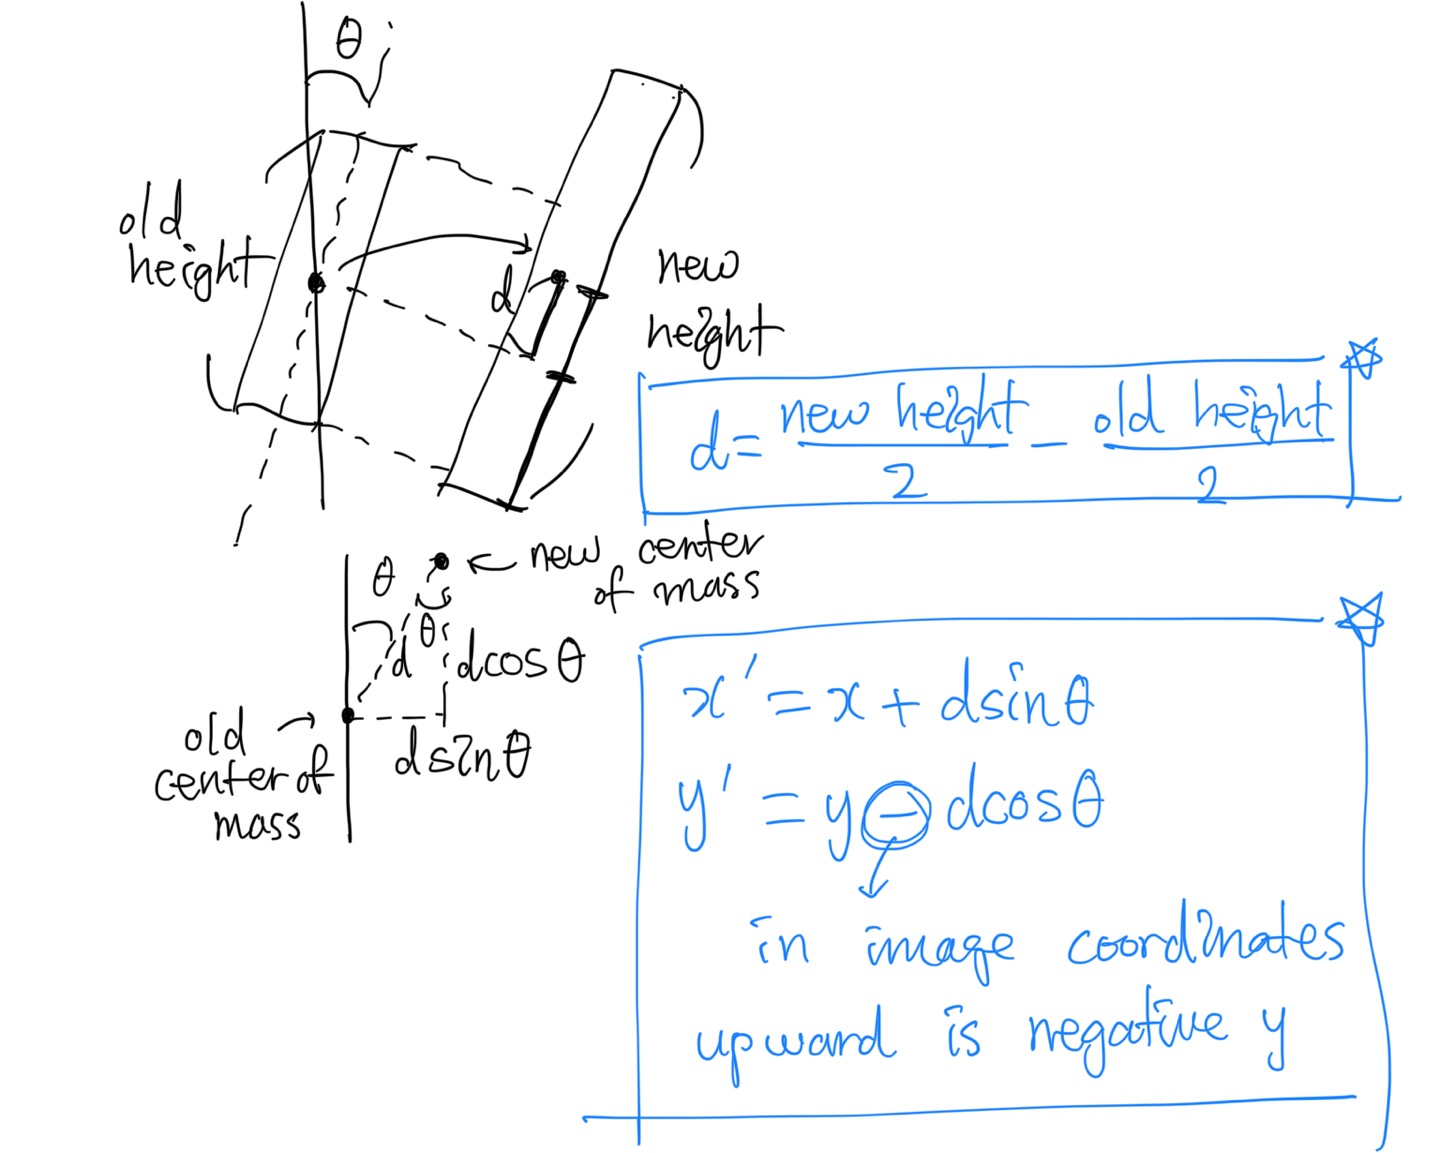 θ
old
height
d
new
height
d = new height / 2 − old height / 2
θ
new center
of mass
θ
d
dcosθ
old
center of
mass
dsinθ
x' = x + dsinθ
y' = y − dcosθ
in image coordinates
upward is negative y